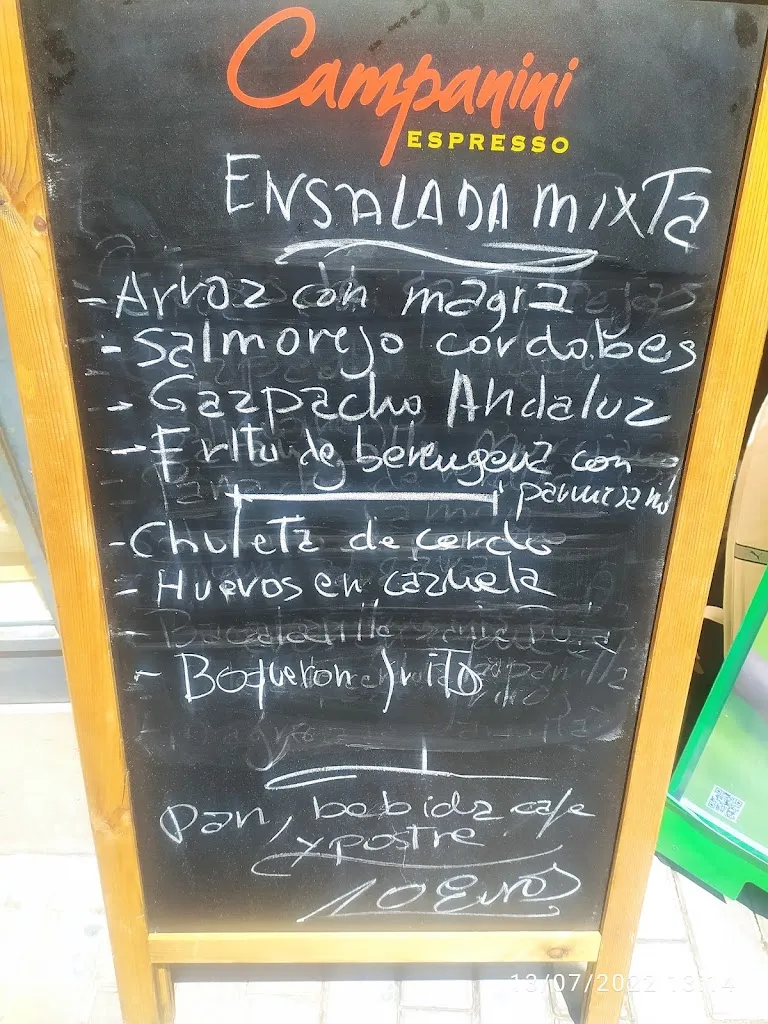 Campanini
ESPRESSO
ENSALADA MIXTa
- Arroz con magra
- Salmorejo cordobes
- Gazpacho Andaluz
- Fritu de berengena con
parmisano
- Chuleta de cerdo
- Huevos en cazuela
- Boqueron frito
Pan, bebida cafe
y postre
10 Euros
13/07/2022 13:14